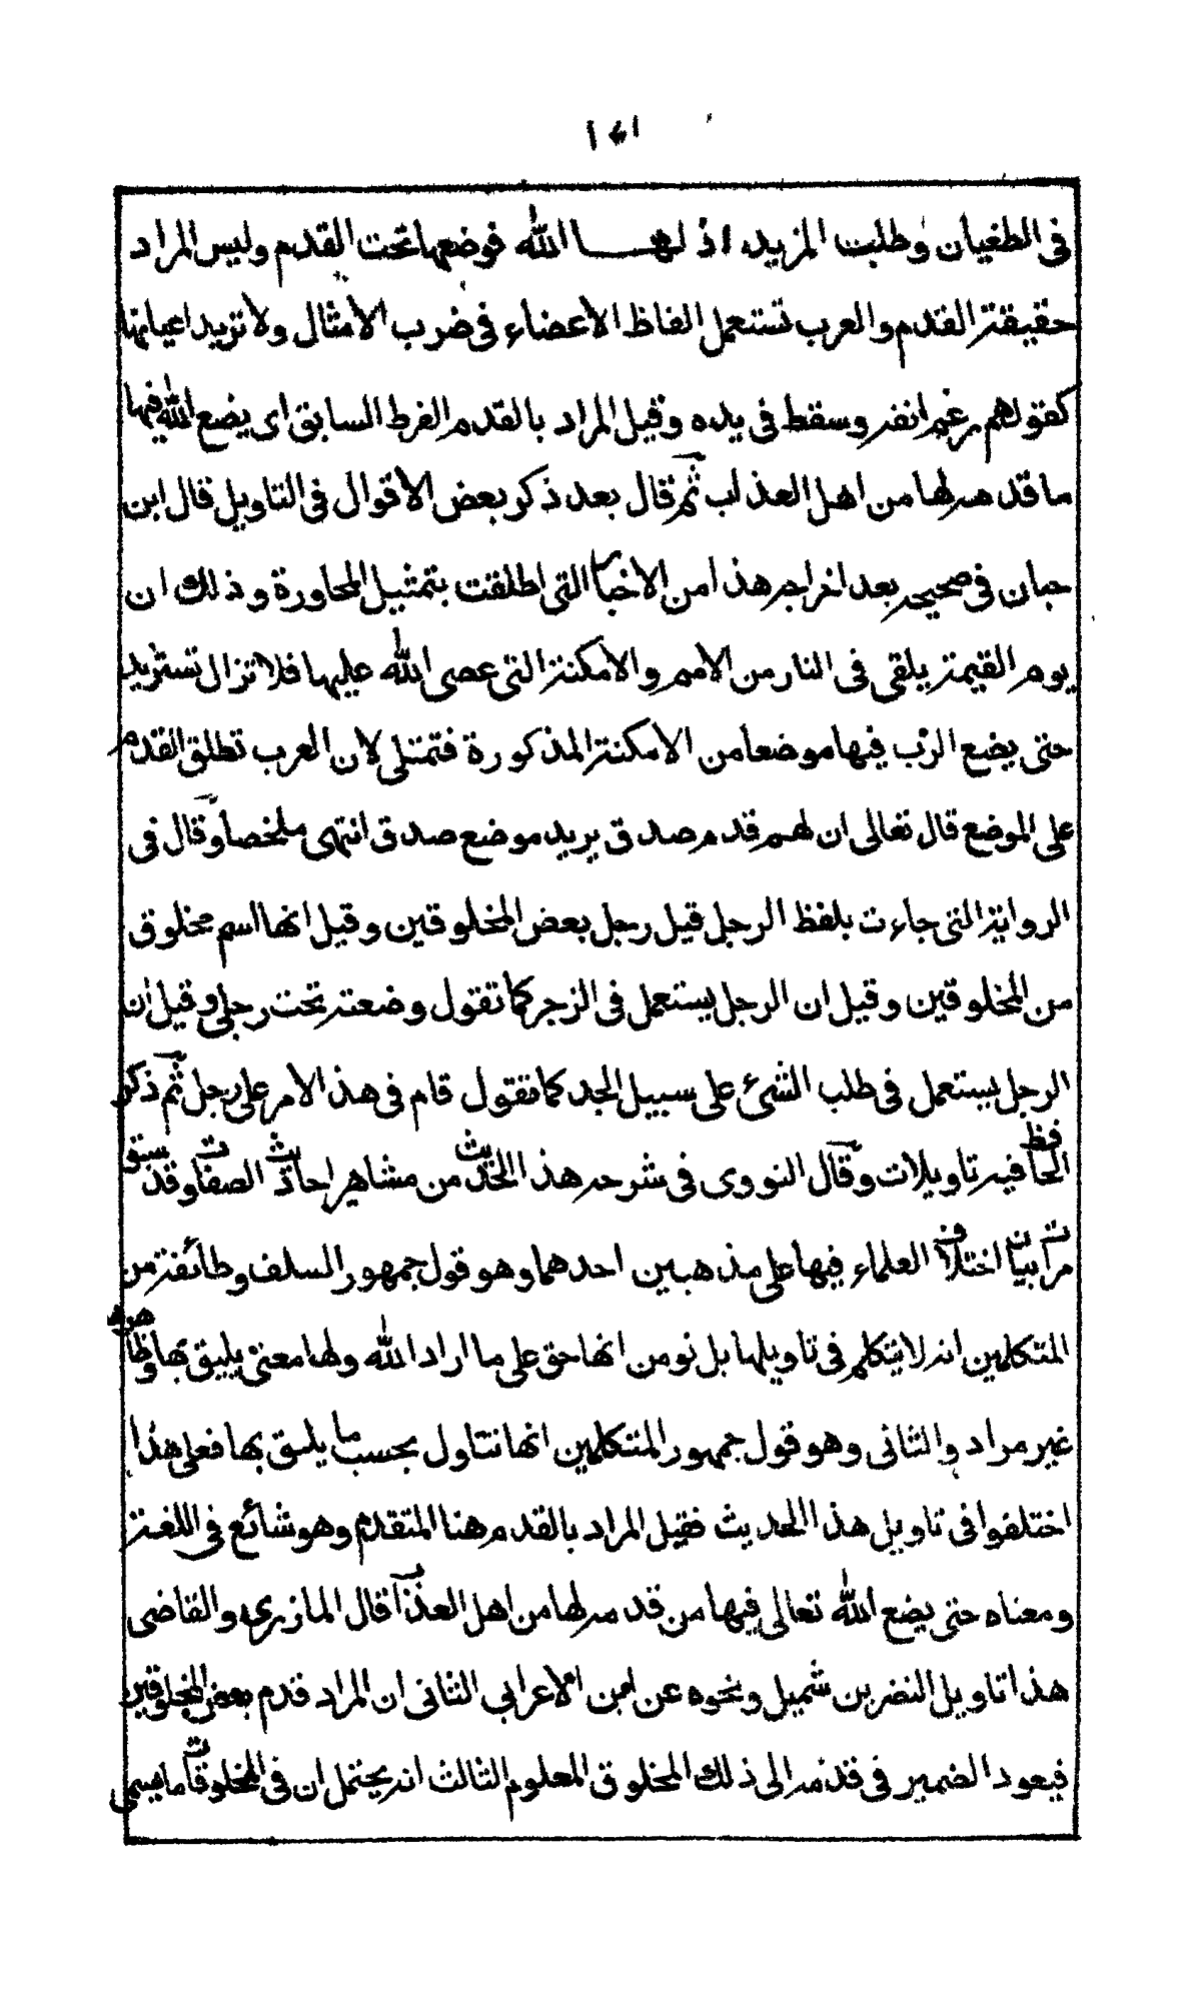 في الطغيان وطلبت المزيد اذلها الله فوضعها تحت القدم وليس المراد
حقيقة القدم والعرب تستعمل الفاظ الاعضاء في ضرب الامثال ولا تريد اعيانها
كقولهم رغم انفه وسقط في يده وقيل المراد بالقدم الفرط السابق اى يضع الله فيها
ما قدمه لها من اهل العذاب ثم قال بعد ذكر بعض الاقوال في التاويل قال ابن
حبان في صحيحه بعد اخراجه هذا من الاخبار التى اطلقت بتمثيل المجاورة وذلك ان
يوم القيمة يلقى فى النار من الامم والامكنة التى عصى الله عليها فلا تزال تستزيد
حتى يضع الرب فيها موضعا من الامكنة المذكورة فتمتلى لان العرب تطلق القدم
على الموضع قال تعالى ان لهم قدم صدق يريد موضع صدق انتهى ملخصا وقال فى
الرواية التى جاءت بلفظ الرجل قيل رجل بعض المخلوقين وقيل انها اسم مخلوق
من المخلوقين وقيل ان الرجل يستعمل فى الزجر كما تقول وضعته تحت رجلى وقيل ان
الرجل يستعمل فى طلب الشىء على سبيل الجد كما تقول قام فى هذا الامر على رجل ثم ذكر
الحافظ فيه تاويلات وقال النووى فى شرحه هذا الحديث من مشاهير احاديث الصفات وقد سبق
مرات بيان اختلاف العلماء فيها على مذهبين احدهما وهو قول جمهور السلف وطائفة من
المتكلمين انه لا يتكلم فى تاويلها بل نومن انها حق على ما اراد الله ولها معنى يليق بها وظاهرها
غير مراد والثانى وهو قول جمهور المتكلمين انها تتاول بحسب ما يليق بها فعلى هذا
اختلفوا فى تاويل هذا الحديث فقيل المراد بالقدم هنا المتقدم وهو شائع فى اللغة
ومعناه حتى يضع الله تعالى فيها من قدمه لها من اهل العذاب قال المازرى والقاضى
هذا تاويل النضر بن شميل ونحوه عن ابن الاعرابى الثانى ان المراد قدم بعض المخلوقين
فيعود الضمير فى قدمه الى ذلك المخلوق المعلوم الثالث انه يحتمل ان فى المخلوقات ما يسمى